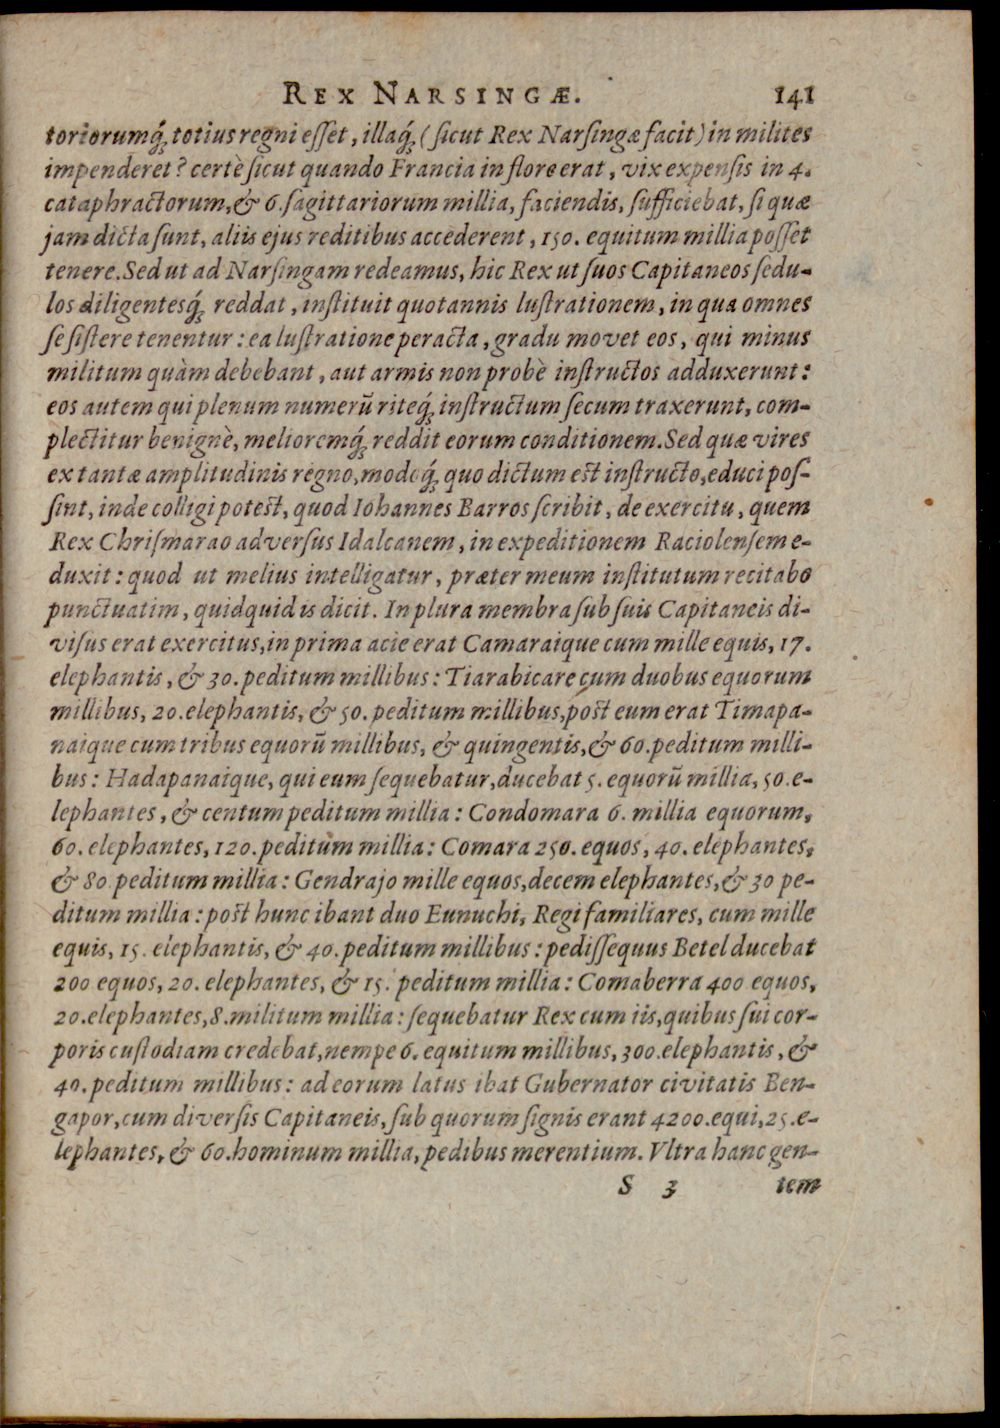 REX NARSINGÆ. 141
toriorumq́₃ totius regni eſſet, illaq́₃ (ſicut Rex Narſingæ facit) in milites
impenderet? certè ſicut quando Francia in flore erat, vix expenſis in 4.
cataphractorum, & 6. ſagittariorum millia, faciendis, ſufficiebat, ſi quæ
jam dicta ſunt, aliis ejus reditibus accederent, 150. equitum millia poſſet
tenere. Sed ut ad Narſingam redeamus, hic Rex ut ſuos Capitaneos ſedu-
los diligentesq́₃ reddat, inſtituit quotannis luſtrationem, in qua omnes
ſe ſiſtere tenentur: ea luſtratione peracta, gradu movet eos, qui minus
militum quàm debebant, aut armis non probè inſtructos adduxerunt:
eos autem qui plenum numerū riteq́₃ inſtructum ſecum traxerunt, com-
plectitur benignè, melioremq́₃ reddit eorum conditionem. Sed quæ vires
ex tantæ amplitudinis regno, modoq́₃ quo dictum eſt inſtructo, educi poſ-
ſint, inde colligi poteſt, quod Iohannes Barros ſcribit, de exercitu, quem
Rex Chriſmarao adverſus Idalcanem, in expeditionem Raciolenſem e-
duxit: quod ut melius intelligatur, præter meum inſtitutum recitabo
punctuatim, quidquid is dicit. In plura membra ſub ſuis Capitaneis di-
viſus erat exercitus, in prima acie erat Camaraique cum mille equis, 17.
elephantis, & 30. peditum millibus: Tiarabicare cum duobus equorum
millibus, 20. elephantis, & 50. peditum millibus, poſt eum erat Timapa-
naique cum tribus equorū millibus, & quingentis, & 60. peditum milli-
bus: Hadapanaique, qui eum ſequebatur, ducebat 5. equorū millia, 50. e-
lephantes, & centum peditum millia: Condomara 6. millia equorum,
60. elephantes, 120. peditum millia: Comara 250. equos, 40. elephantes,
& 80 peditum millia: Gendrajo mille equos, decem elephantes, & 30 pe-
ditum millia: poſt hunc ibant duo Eunuchi, Regi familiares, cum mille
equis, 15. elephantis, & 40. peditum millibus: pediſſequus Betel ducebat
200 equos, 20. elephantes, & 15. peditum millia: Comaberra 400 equos,
20. elephantes, 8. militum millia: ſequebatur Rex cum iis, quibus ſui cor-
poris cuſtodiam credebat, nempe 6. equitum millibus, 300. elephantis, &
40. peditum millibus: ad eorum latus ibat Gubernator civitatis Ben-
gapor, cum diverſis Capitaneis, ſub quorum ſignis erant 4200. equi, 25. e-
lephantes, & 60. hominum millia, pedibus merentium. Vltra hanc gen-
S 3 tem